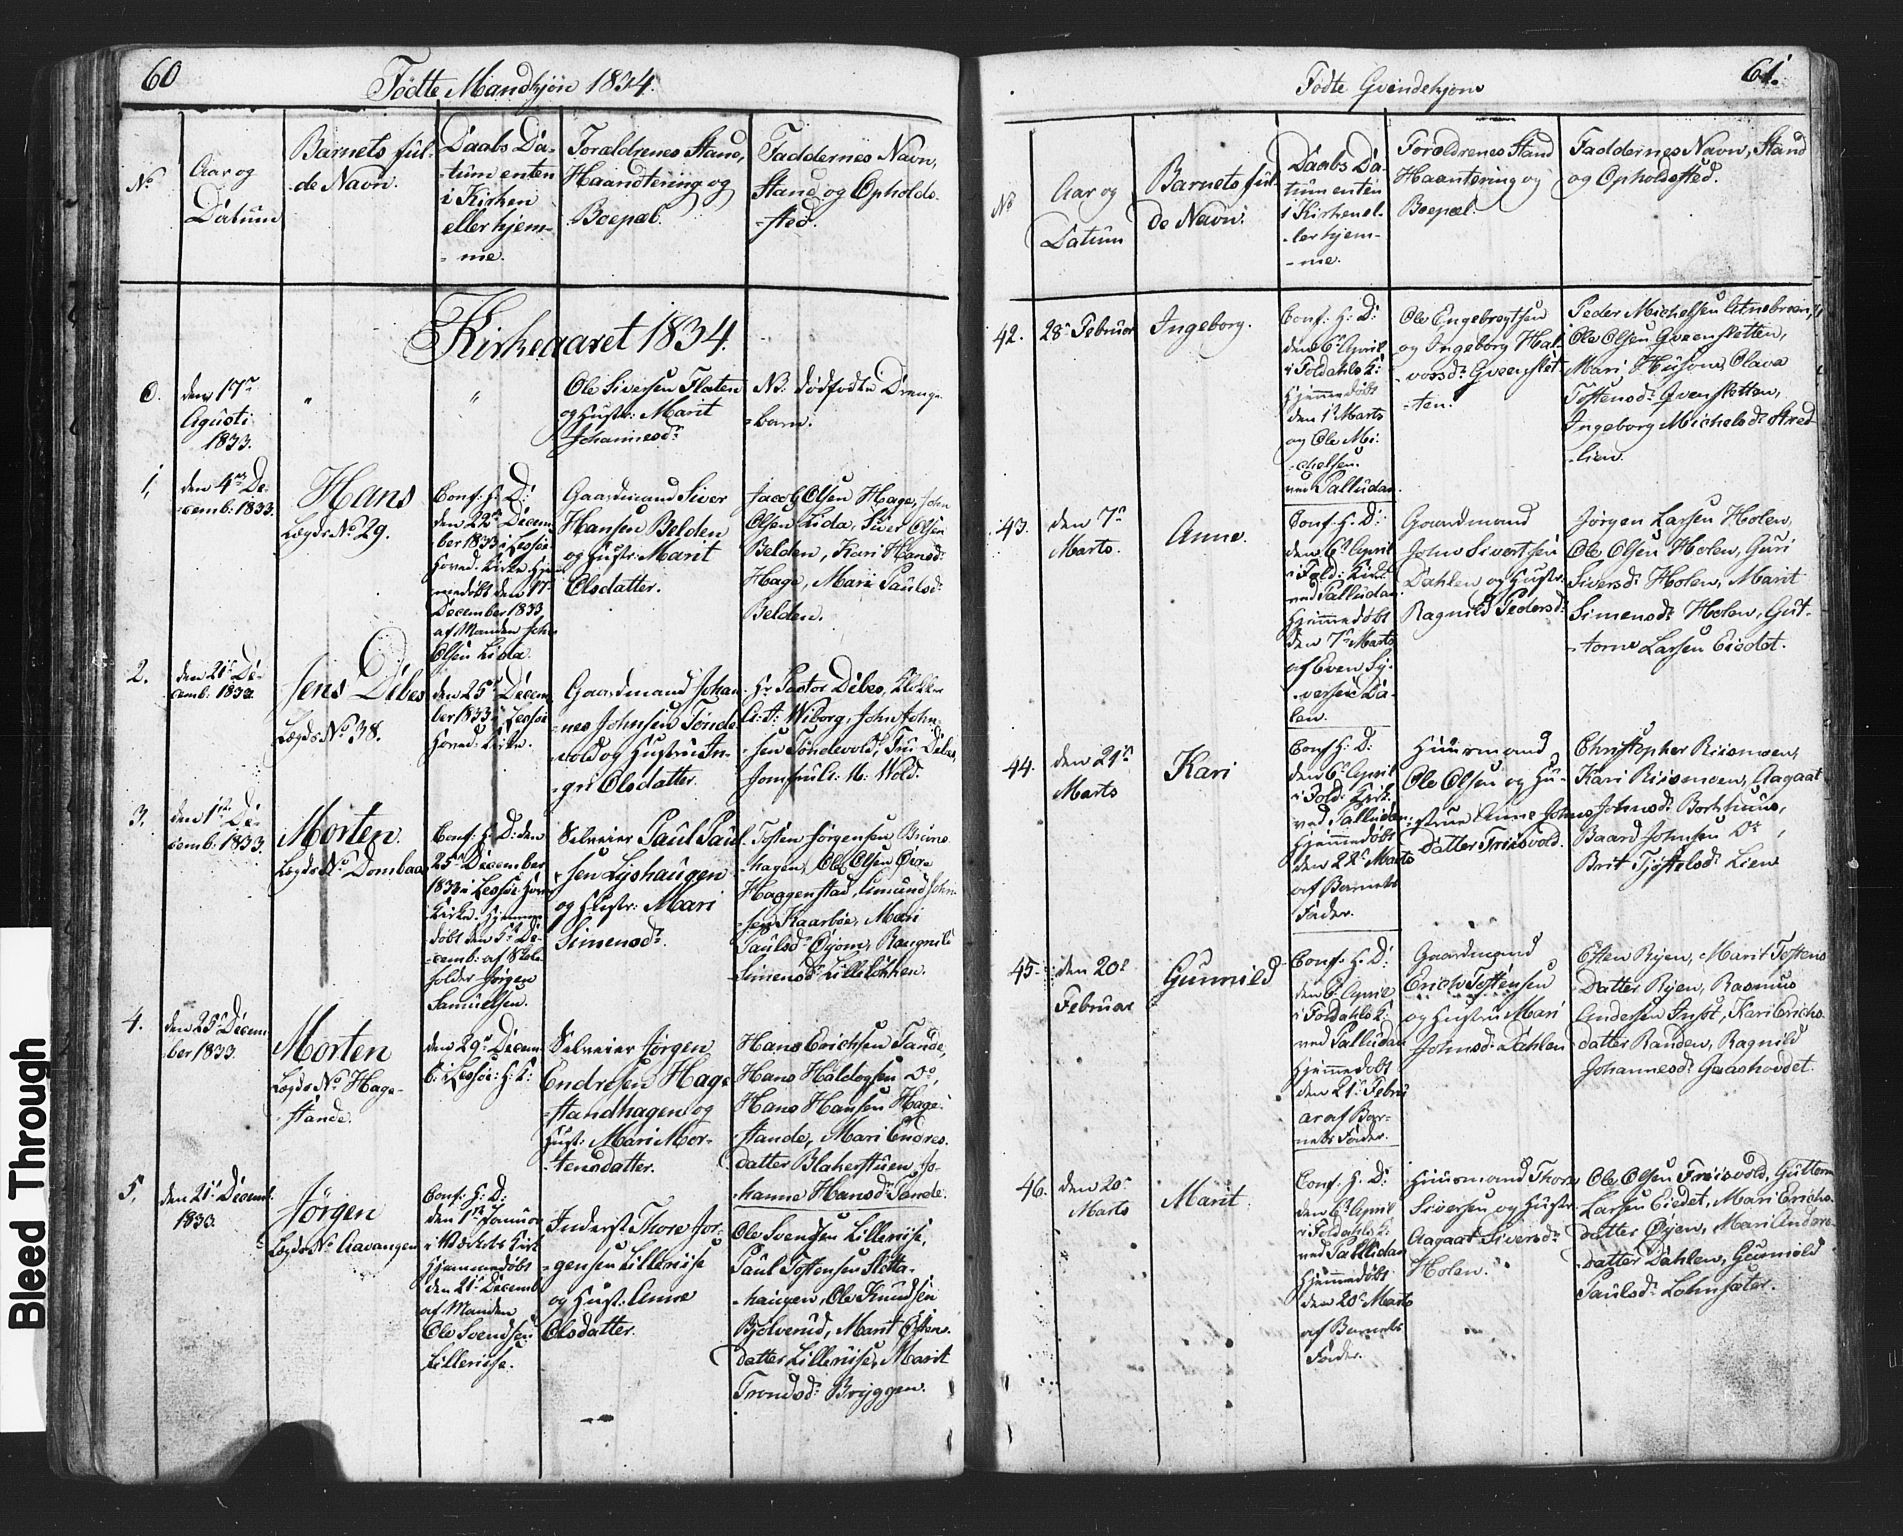 60
Fødte Mandkjøn 1834.
No
Aar og
Datum
Barnets ful-
de Navn.
Daabs Da-
-tum enten
i Kirken
eller hjem-
-me.
Forældrenes Stand,
Haandtering og
Boepæl.
Faddernes Navn,
Stand og Opholds-
-sted.
Kirkeaaret 1834.
0.
den 17de
Agusti
1833.
"
"
Ole Siversen Flaten
og Hustr: Marit
Johannesdr
N: dødfødte Drenge-
-barn.
1,
den 4de De-
-cemb: 1833.
Hans
Lægds No 29.
Conf: H: D:
den 22de Decem-
ber 1833 i Lessøe
Hoved-Kirke Hjem-
medøbt den 17de
December 1833
af Manden John
Olsen Lida.
Gaardmand Siver
Hansen Belden
og Hustr: Marit
Olsdatter.
Jacob Olsen Hage, John
Olsen Lida, Siver Olsen
Belden, Kari Hansdr
Hage, Mari Paulsdr
Belden.
2.
den 21de De-
cemb: 1833.
Jens Debes
Lægds No 38.
den 25de Decem-
ber 1833 i Lessøe
Hoved-Kirke.
Gaardmand Johan-
-nes Johnsen Tønde-
-vold og Hustru In-
-gri Olsdatter.
Hr Pastor Debes, Klokker
C: A: Wiborg, John John-
-sen Tøndevold, Fru Debes,
Jomfru C: M: Wold.
3.
den 1ste De-
cemb: 1833.
Morten.
Lægds No Dombaas
Conf: H: D: den
25de December
1833 i Lessøe Hoved
Kirke. Hjemme-
døbt den 5te De-
-cemb: af Skole-
holder Jørgen
Samuelsen.
Selveier Paul Paul-
-sen Lyshaugen
og Hustr: Mari
Simensdr
Tosten Jørgensen Bruns-
hagen, Ole Olsen Øvre
Haggenstad, Amund John-
-sen Kaarbøe, Mari
Paulsdr Øyom, Rangnild
Simensdr Lilleløkken.
4.
den 25de Decem-
ber 1833.
Morten
Lægds No Hage-
-stande.
den 29de Decem-
b: i Lessøe: H: K:
Selveier Jørgen
Endresen Hage
-standhagen og
Hust: Mari Mor-
-tensdatter.
Hans Erichsen Tande,
Hans Haldogsen Do,
Hans Hansen Hage-
-stande, Mari Endres-
datter Blaherstuen, Jo-
-hanne Hansdr Tande.
5.
den 21de Decemb:
1833.
Jørgen
Lægds No Aavangen
Conf: H: D:
den 1ste Januar
i Kirk
Hjemmedøbt
den 21de Decemb
af Manden
Ole Svendsen
Lilleriise.
Inderst: Thore Jør-
-gensen Lilleriise
og Hust: Anne
Olsdatter.
Ole Svendsen Lilleriise,
Paul Tostensen Sletta-
-haugen, Ole Knudsen
Bjølverud, Marit Østens-
datter Lilleriise, Marit
Trondsdr Bryggen.
61.
Fødte Qvindekjøn
No
Aar og
Datum
Barnets ful-
de Navn.
Daabs Da-
tum enten
i Kirken el-
-ler hjem-
-me.
Forældrenes Stand
Haantering og
Boepæl.
Faddernes Navn, Stand
og Opholdssted.
42.
28de Februar
Ingeborg.
Conf: H: D:
den 6te April
i Foldahls K:
Hjemmedøbt
den 1ste Marts
og Ole Mi-
-chelsen.
ved Palludan.
Ole Engebregtsen
og Ingeborg Hal-
vorsdr Qveenstet-
-ten.
Peder Michelsen Atnebroen,
Ole Olsen Qveenstetten,
Mari Husom, Olava
Tostensdr Qvenstetten,
Ingeborg Michelsdr Stred-
-lien.
43.
den 7de
Marts.
Anne.
Conf: H: D:
den 6te April
i Fold: Kirk
ved Palludan.
Hjemmedøbt
den 7de Marts
af Even Sy-
-versen Da-
len.
Gaardmand
John Sivertsen
Dahlen og Hustr
Ragnild Pedersdr
Jørgen Larsen Holen,
Ole Olsen Holen, Guri
Siversdr Holen, Marit
Simensdr Holen, Gut-
-torm Larsen Eiedet.
44.
den 21de
Marts
Kari
Conf H: D:
den 6te April
i Fold: Kirk.
ved Palludan:
Hjemmedøbt
den 22de Marts
af Barnets
Fader.
Huusmand
Ole Olsen og Hu-
-strue Anne Johns-
datter Friisvold.
Christopher Riismoen,
Kari Riismoen, Aagaat
Johnsdr Borkhuus,
Baard Johnsen Do,
Brit Tjøstelsdr Lien
45.
den 20de
Februar
Gunnild
Conf: H: D:
den 6te April
i Foldahls K:
ved Palludan
Hjemmedøbt
den 21de Febru
ar af Bar-
-nets Fader.
Gaardmand
Erich Tostensen
og Hustru Mari
Johnsdr Dahlen
Østen Ryen, Marit Tostens-
datter Ryen, Rasmus
Andersen Inset, Kari Erichs-
datter Randen, Ragnild
Johannesdr Gaashovdet.
46.
den 20de
Marts
Marit
Conf: H: D:
den 6te April
i Foldahls K:
ved Palludan
Hjemmedøbt
den 20de Marts
af Barnets
Fader.
Huusmand Thore
Siversen og Hustr
Aagaat Siversdr
Holen.
Ole Olsen Friisvold, Guttorm
Larsen Eiedet, Mari Erichs-
datter Øyen, Mari Anders-
-datter Dahlen, Gunnild
Paulsdr Lohnsæter.
Bleed Through